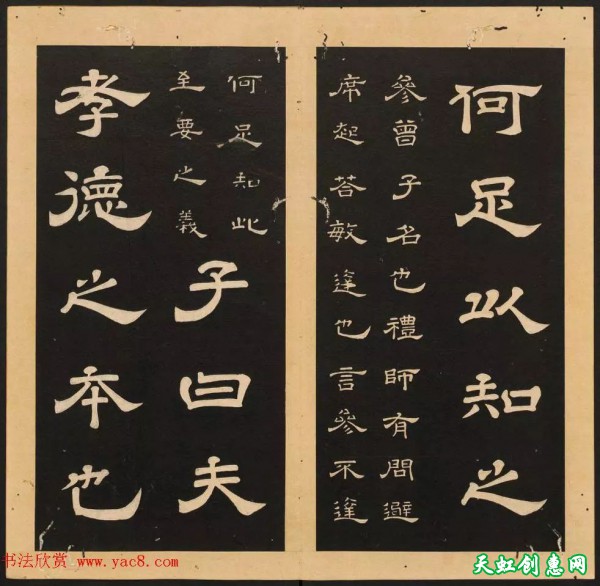 何足以知之
參曾子名也禮師有問避
席起荅敏達也言參不達
何足知此
至要之義
子曰夫
孝德之本也
书法欣赏 www.yac8.com
天虹创惠网